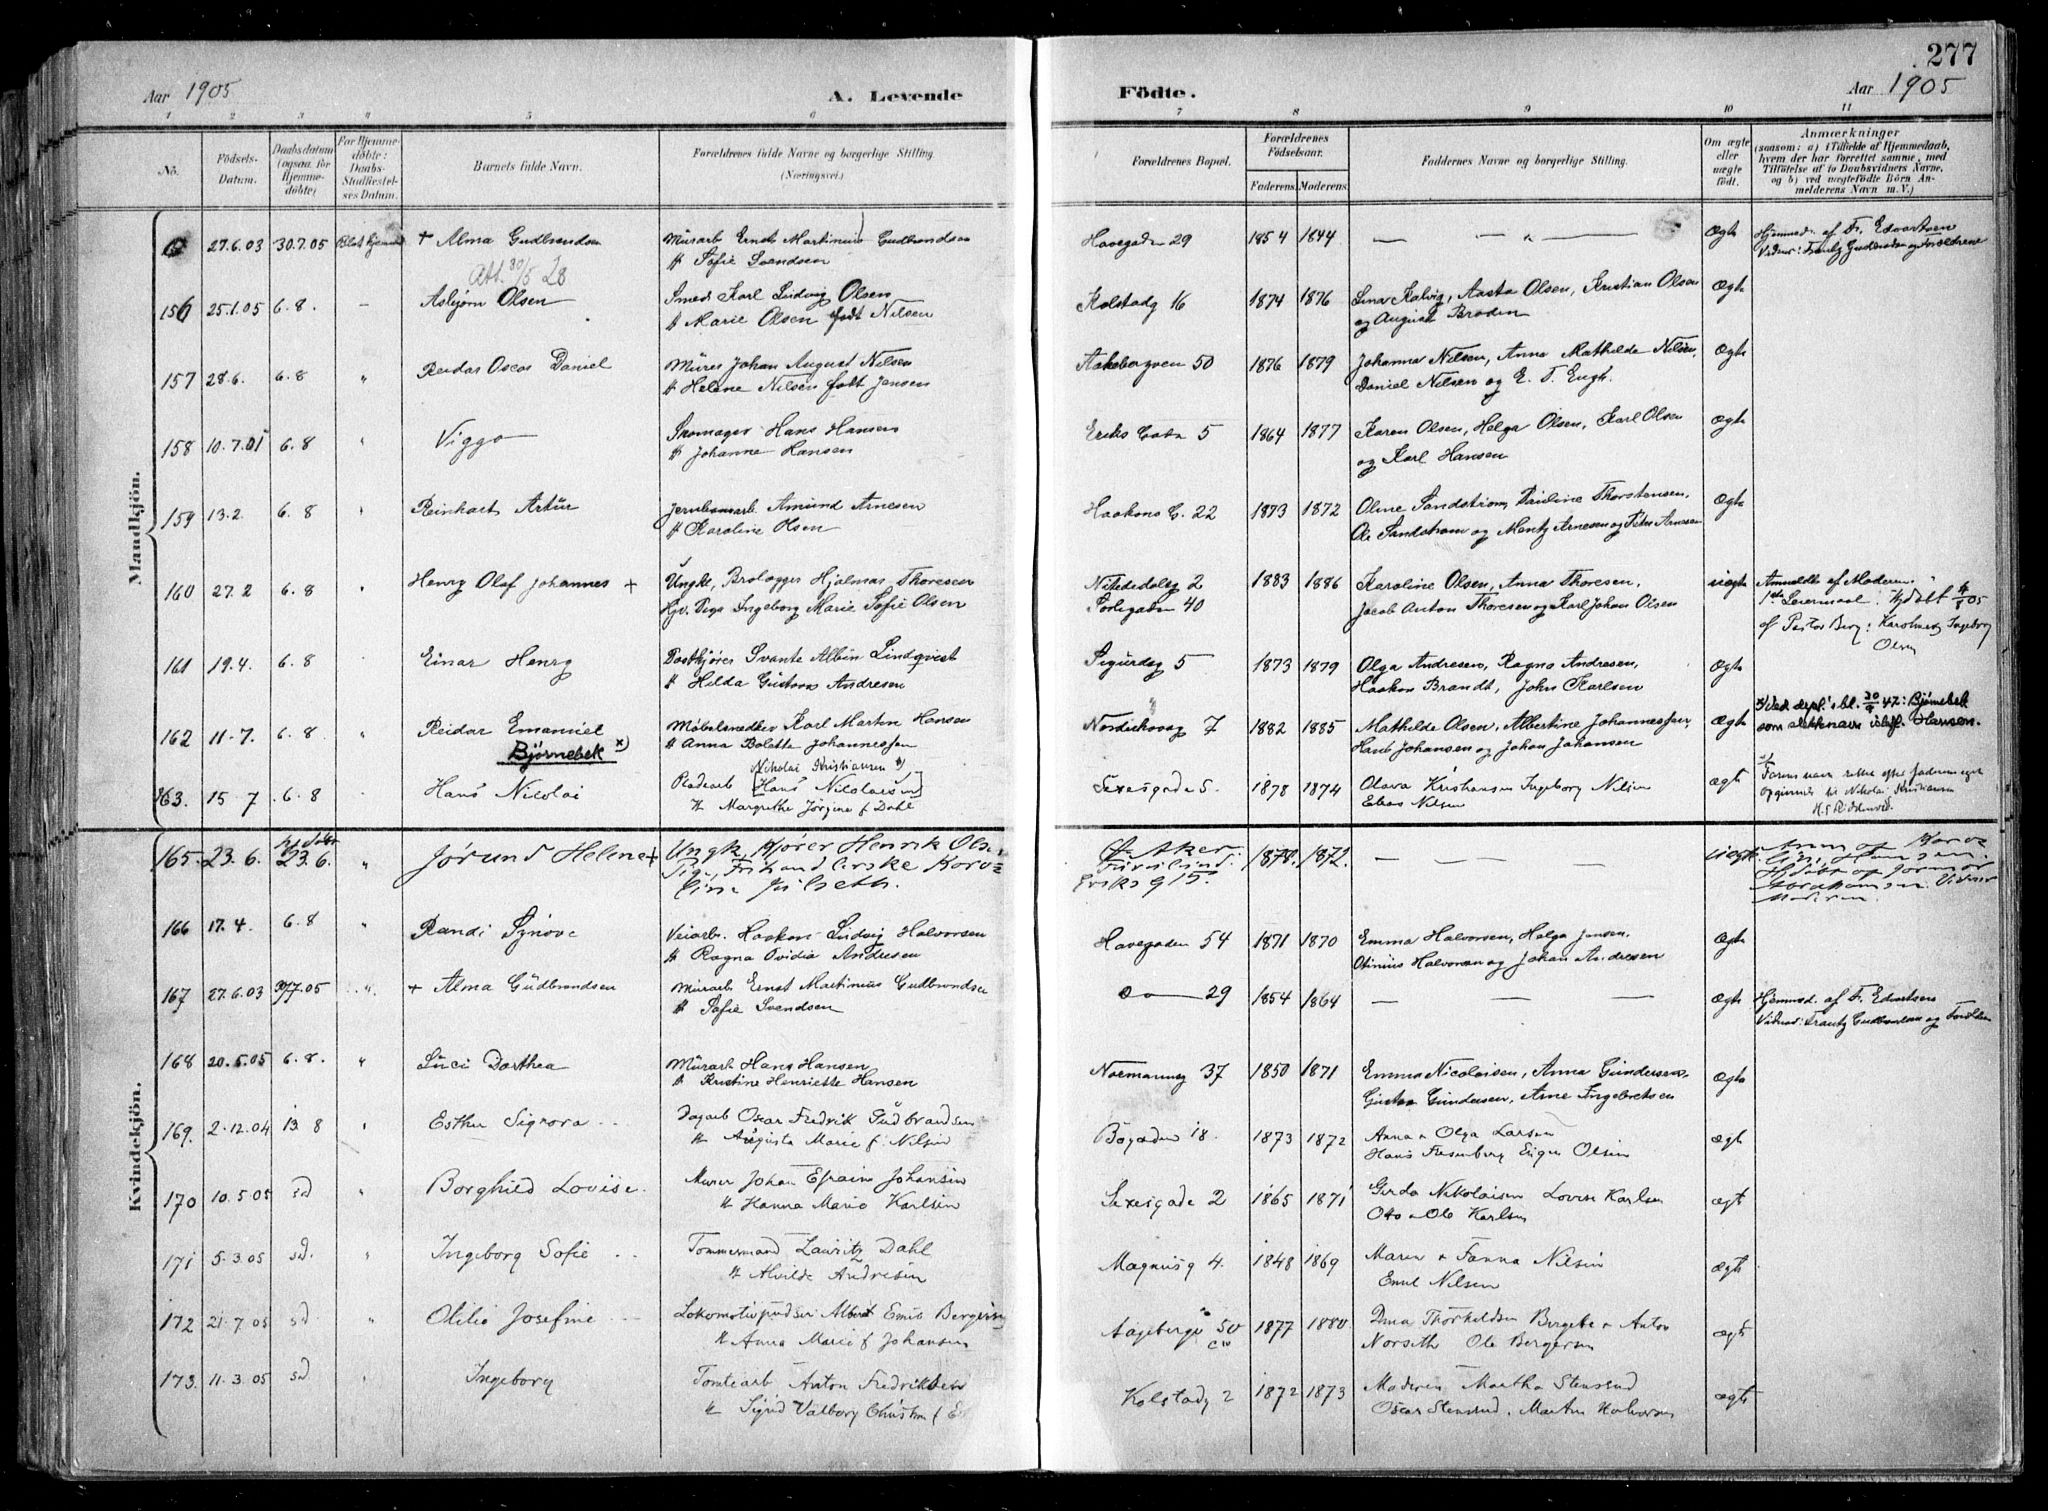 277
Aar 1905
A. Levende
Födte.
Aar 1905
1 2 3 4 5 6 7 8 9 10 11
No.
Födsels-
Datum.
Daabsdatum
(ogsaa for
Hjemme-
døbte)
For Hjemme-
døbte:
Daabs-
Stadfæstel-
ses Datum.
Barnets fulde Navn.
Forældrenes fulde Navne og borgerlige Stilling.
(Næringsvei.)
Forældrenes Bopæl.
Forældrenes
Födselsaar.
Faderens. Moderens.
Faddernes Navne og borgerlige Stilling.
Om ægte
eller
uægte
født.
Anmærkninger
(saasom: a) i Tilfælde af Hjemmedaab,
hvem der har forrettet samme, med
Tilföielse af to Daabsvidners Navne,
og b) ved uægtefödte Börn An-
melderens Navn m. V.)
Mandkjön.
27.6.03 30.7.05 Blot hjemmed + Alma Gudbrandsen Murarb Ernst Martinius Gudbrandsen Havegaden 29 1854 1844 — " — Ægte Hjemmed. af Fr. Edvartsen
Sofie Svendsen Vidner: Frantz Gudbrandsen og Forældrene
Att. 30/5 28
156 25.1.05 6.8. — Asbjørn Olsen Smed Karl Ludvig Olsen Kolstadg 16 1874 1876 Lina Kalvig, Aasta Olsen, Kristian Olsen Ægte
Marie Olsen født Nilsen og August Broden
157 28.6. 6.8 " Reidar Oscar Daniel Murer Johan August Nilsen Aakebergven 50 1876 1879 Johanna Nilsen, Anna Mathilde Nilsen, Ægte
Helene Nilsen født Jensen Daniel Nilsen og E. T. Engh.
158 10.7.01 6.8 " Viggo Skomager Hans Hansen Eriks Gata 5 1864 1877 Karen Olsen, Helga Olsen, Karl Olsen Ægte
Johanne Hansen og Karl Hansen
159 13.2. 6.8 " Reinhart Artur Jernbanearb. Amund Arnesen Haakons G. 22 1873 1872 Oline Sandstrøm, Pauline Thorstensen, Ægte
Karoline Olsen Ole Sandstrøm og Mentz Arnesen og Peter Arnesen
160 27.2 6.8 " Henry Olaf Johannes + Ungk, Brolægger Hjalmar Thoresen Nittedalsg 2. 1883 1886 Karoline Olsen, Anna Thoresen, uægte Anmeldt af Moderen.
Pige Ingeborg Marie Sofie Olsen Sorlegaden 40 Jacob Anton Thoresen og Karl Johan Olsen 1ste Leiermaal. Hjdøbt 4/8 05
af Pastor Berg: Karoline og Ingeborg
Olsen
161 19.4. 6.8 " Einar Henry Postkjører Svante Albin Lindqvist Sigurdsg 5 1873 1879 Olga Andresen, Ragna Andresen, Ægte
Hilda Gustava Andresen Haakon Brandt, John Karlsen
162 11.7. 6.8 " Reidar Emanuel Møbelsnedker Karl Martin Hansen Nordiskvag 7 1882 1885 Mathilde Olsen, Albertine Johannessen, Ægte x) Ved depl's bl. 20/9 42: Bjørnebek
Bjørnebek x) Anna Bolette Johannessen Hans Johansen og Johan Johansen som slektsnavn istf. Hansen.
Nikolai Kristiansen
163. 15.7 6.8 " Hans Nicolai [Hans Nilolaisen] Sexesgade 5. 1878 1874 Olava Kristiansen Ingeborg Nilsen ægt Farens navn rettet efter faderens eget
Margrethe Jørgine f Dahl Elias Nilsen opgivende til Nikolai Kristiansen
Kvindekjön.
165. 23.6. 23.6. " Jørund Helene + Ungk, Kjører Henrik Olsen 1878. 1872. — — — Uægte Anm. af Karo-
Pige, Karo- line Hansen.
line Eriks g 15. Hjdøbt af Jormor
Abrahamsen. Vidner
Moderen.
166 17.4. 6.8 " Randi Synøve Veiarb. Haakon Ludvig Halvorsen Havegaden 54 1871 1870 Emma Halvorsen, Helga Jensen, Ægte
Ragna Ovidia Andresen Otinius Halvorsen og Johan Andresen
167 27.6.03 30/7.05 " + Alma Gudbrandsen Murarb Ernst Martinius Gudbrandsen — 29 1854 1864 — — — Ægte Hjemmed. af Fr. Edvartsen
Sofie Svendsen Vidner: Frantz Gudbrandsen og Forældrene
168 20.5.05 6.8. " Luci Dorthea Murarb Hans Hansen Normannsg 37 1850 1871 Emma Nicolaisen, Anna Gundersen, Ægte
Kristine Henriette Hansen Gustav Gundersen, Arne Ingebretsen
169. 2.12.04 13.8 " Esther Signora Dagarb Oscar Fredrik Gudbrandsen Bøgaden 18. 1873 1872 Anna + Olga Larsen ægt
Augusta Marie f. Nilsen Hans Olsen
170 10.5.05 sd " Borghild Lovise. Murer Johan Efraim Johansen Sexesgade 2 1865 1871 Gerda Nikolaisen Lovise Karlsen ægt
Hanna Marie Karlsen Otto + Ole Karlsen
171 5.3.05 sd. " Ingeborg Sofie Tømmermand Lauritz Dahl Magnusg 4. 1848 1869 Maren + Fanna Nilsen ægts
Alvilde Andresen Emil Nilsen
172 21.7.05 sd " Otilie Josefine Lokomotivpudser Albert Emil Bergersen Aagebergv 50 1877 1880 Thorkeldsen + Anton ægts
Anna Marie f Johansen Norseth Ole Bergersen
173. 11.3.05 sd " Ingeborg Tomtearb Anton Fredriksen Kolstadg 2 1872 1873 Moderen Martha Stensrud ægts
Sigrid Valborg Christin f Oscar Stensrud, Martin Halvorsen